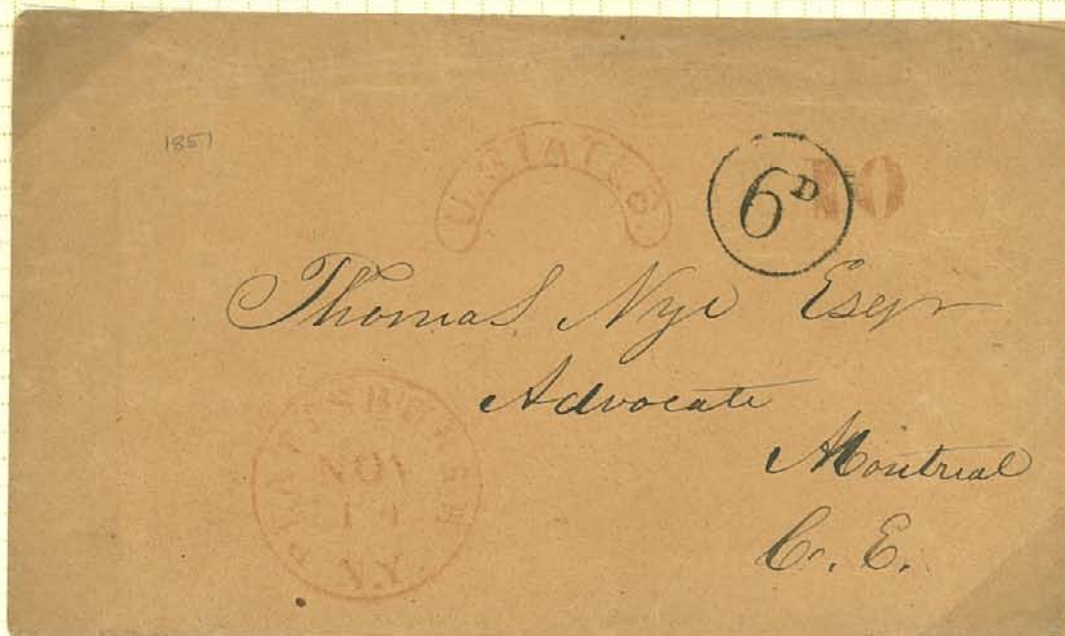 1851
U. STATES
6D 10
Thomas Nye Esqr
Advocate
Montreal
C. E.
PLATTSBURGH
NOV
14
N.Y.